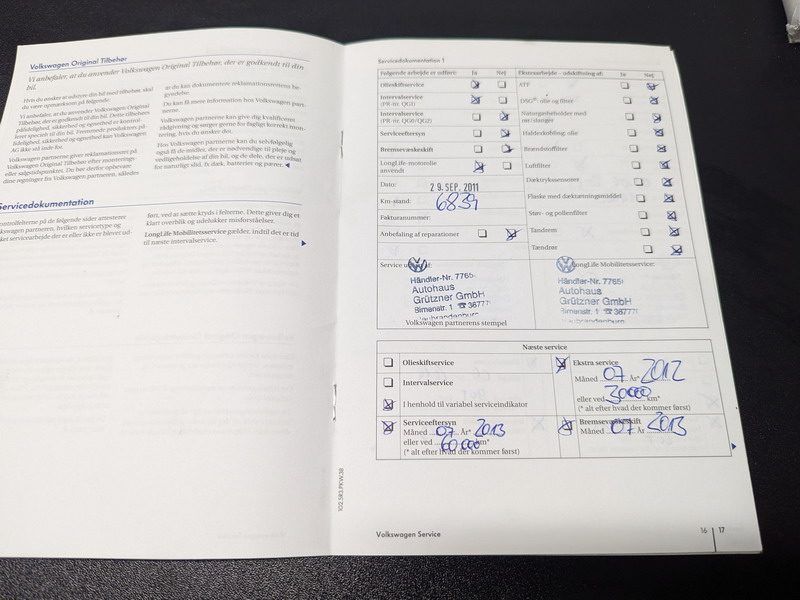 Volkswagen Original Tilbehør
Vi anbefaler, at du anvender Volkswagen Original Tilbehør, der er godkendt til din
bil.
Hvis du ønsker at udstyre din bil med tilbehør, skal
du være opmærksom på følgende:
Vi anbefaler, at du anvender Volkswagen Original
Tilbehør, der er godkendt til din bil. Dette tilbehørs
pålidelighed, sikkerhed og egnethed er kontrol-
leret specielt til din bil. Fremmede produkters på-
lidelighed, sikkerhed og egnethed kan Volkswagen
AG ikke stå inde for.
Volkswagen partnerne giver reklamationsret på
Volkswagen Original Tilbehør efter monterings-
eller salgstidspunktet. Du bør derfor opbevare
dine regninger fra Volkswagen partneren, således
at du kan dokumentere reklamationsrettens be-
gyndelse.
Du kan få mere information hos Volkswagen part-
nerne.
Volkswagen partnerne kan give dig kvalificeret
rådgivning og sørger gerne for fagligt korrekt mon-
tering, hvis du ønsker det.
Hos Volkswagen partnerne kan du selvfølgelig
også få de midler, der er nødvendige til pleje og
vedligeholdelse af din bil, og de dele, der er udsat
for naturligt slid, fx dæk, batterier og pærer.
Servicedokumentation
Kontrolfelterne på de følgende sider attesterer
Volkswagen partneren, hvilken servicetype og
hvilket servicearbejde der er eller ikke er blevet ud-
ført, ved at sætte kryds i felterne. Dette giver dig et
klart overblik og udelukker misforståelser.
LongLife Mobilitetsservice gælder, indtil det er tid
til næste intervalservice.
102.5R3.PKW.38
Servicedokumentation 1
Følgende arbejde er udført: Ja Nej
Olieskiftservice
Intervalservice
(PR-nr. QG1)
Intervalservice
(PR-nr. QG0/QG2)
Serviceeftersyn
Bremsevæskeskift
LongLife-motorolie
anvendt
Dato: 29. SEP. 2011
Km-stand: 6839
Fakturanummer:
Anbefaling af reparationer
Ekstraarbejde – udskiftning af: Ja Nej
ATF
DSG®: olie og filter
Naturgasbeholder med
rør/slanger
Haldexkobling: olie
Brændstoffilter
Luftfilter
Dæktrykssensorer
Flaske med dæktætningsmiddel
Støv- og pollenfilter
Tandrem
Tændrør
Service udført af:
Händler-Nr. 7765
Autohaus
Grützner GmbH
Birnenstr. 1 ☎ 36777
Neubrandenburg
Volkswagen partnerens stempel
LongLife Mobilitetsservice:
Händler-Nr. 7765
Autohaus
Grützner GmbH
Birnenstr. 1 ☎ 36777
Neubrandenburg
Næste service
Olieskiftservice
Intervalservice
I henhold til variabel serviceindikator
Ekstra service
Måned 07 År* 2012
eller ved 30000 km*
(* alt efter hvad der kommer først)
Serviceeftersyn
Måned 07 År* 2013
eller ved 60.000 km*
(* alt efter hvad der kommer først)
Bremsevæskeskift
Måned 07 År 2013
Volkswagen Service
16 17